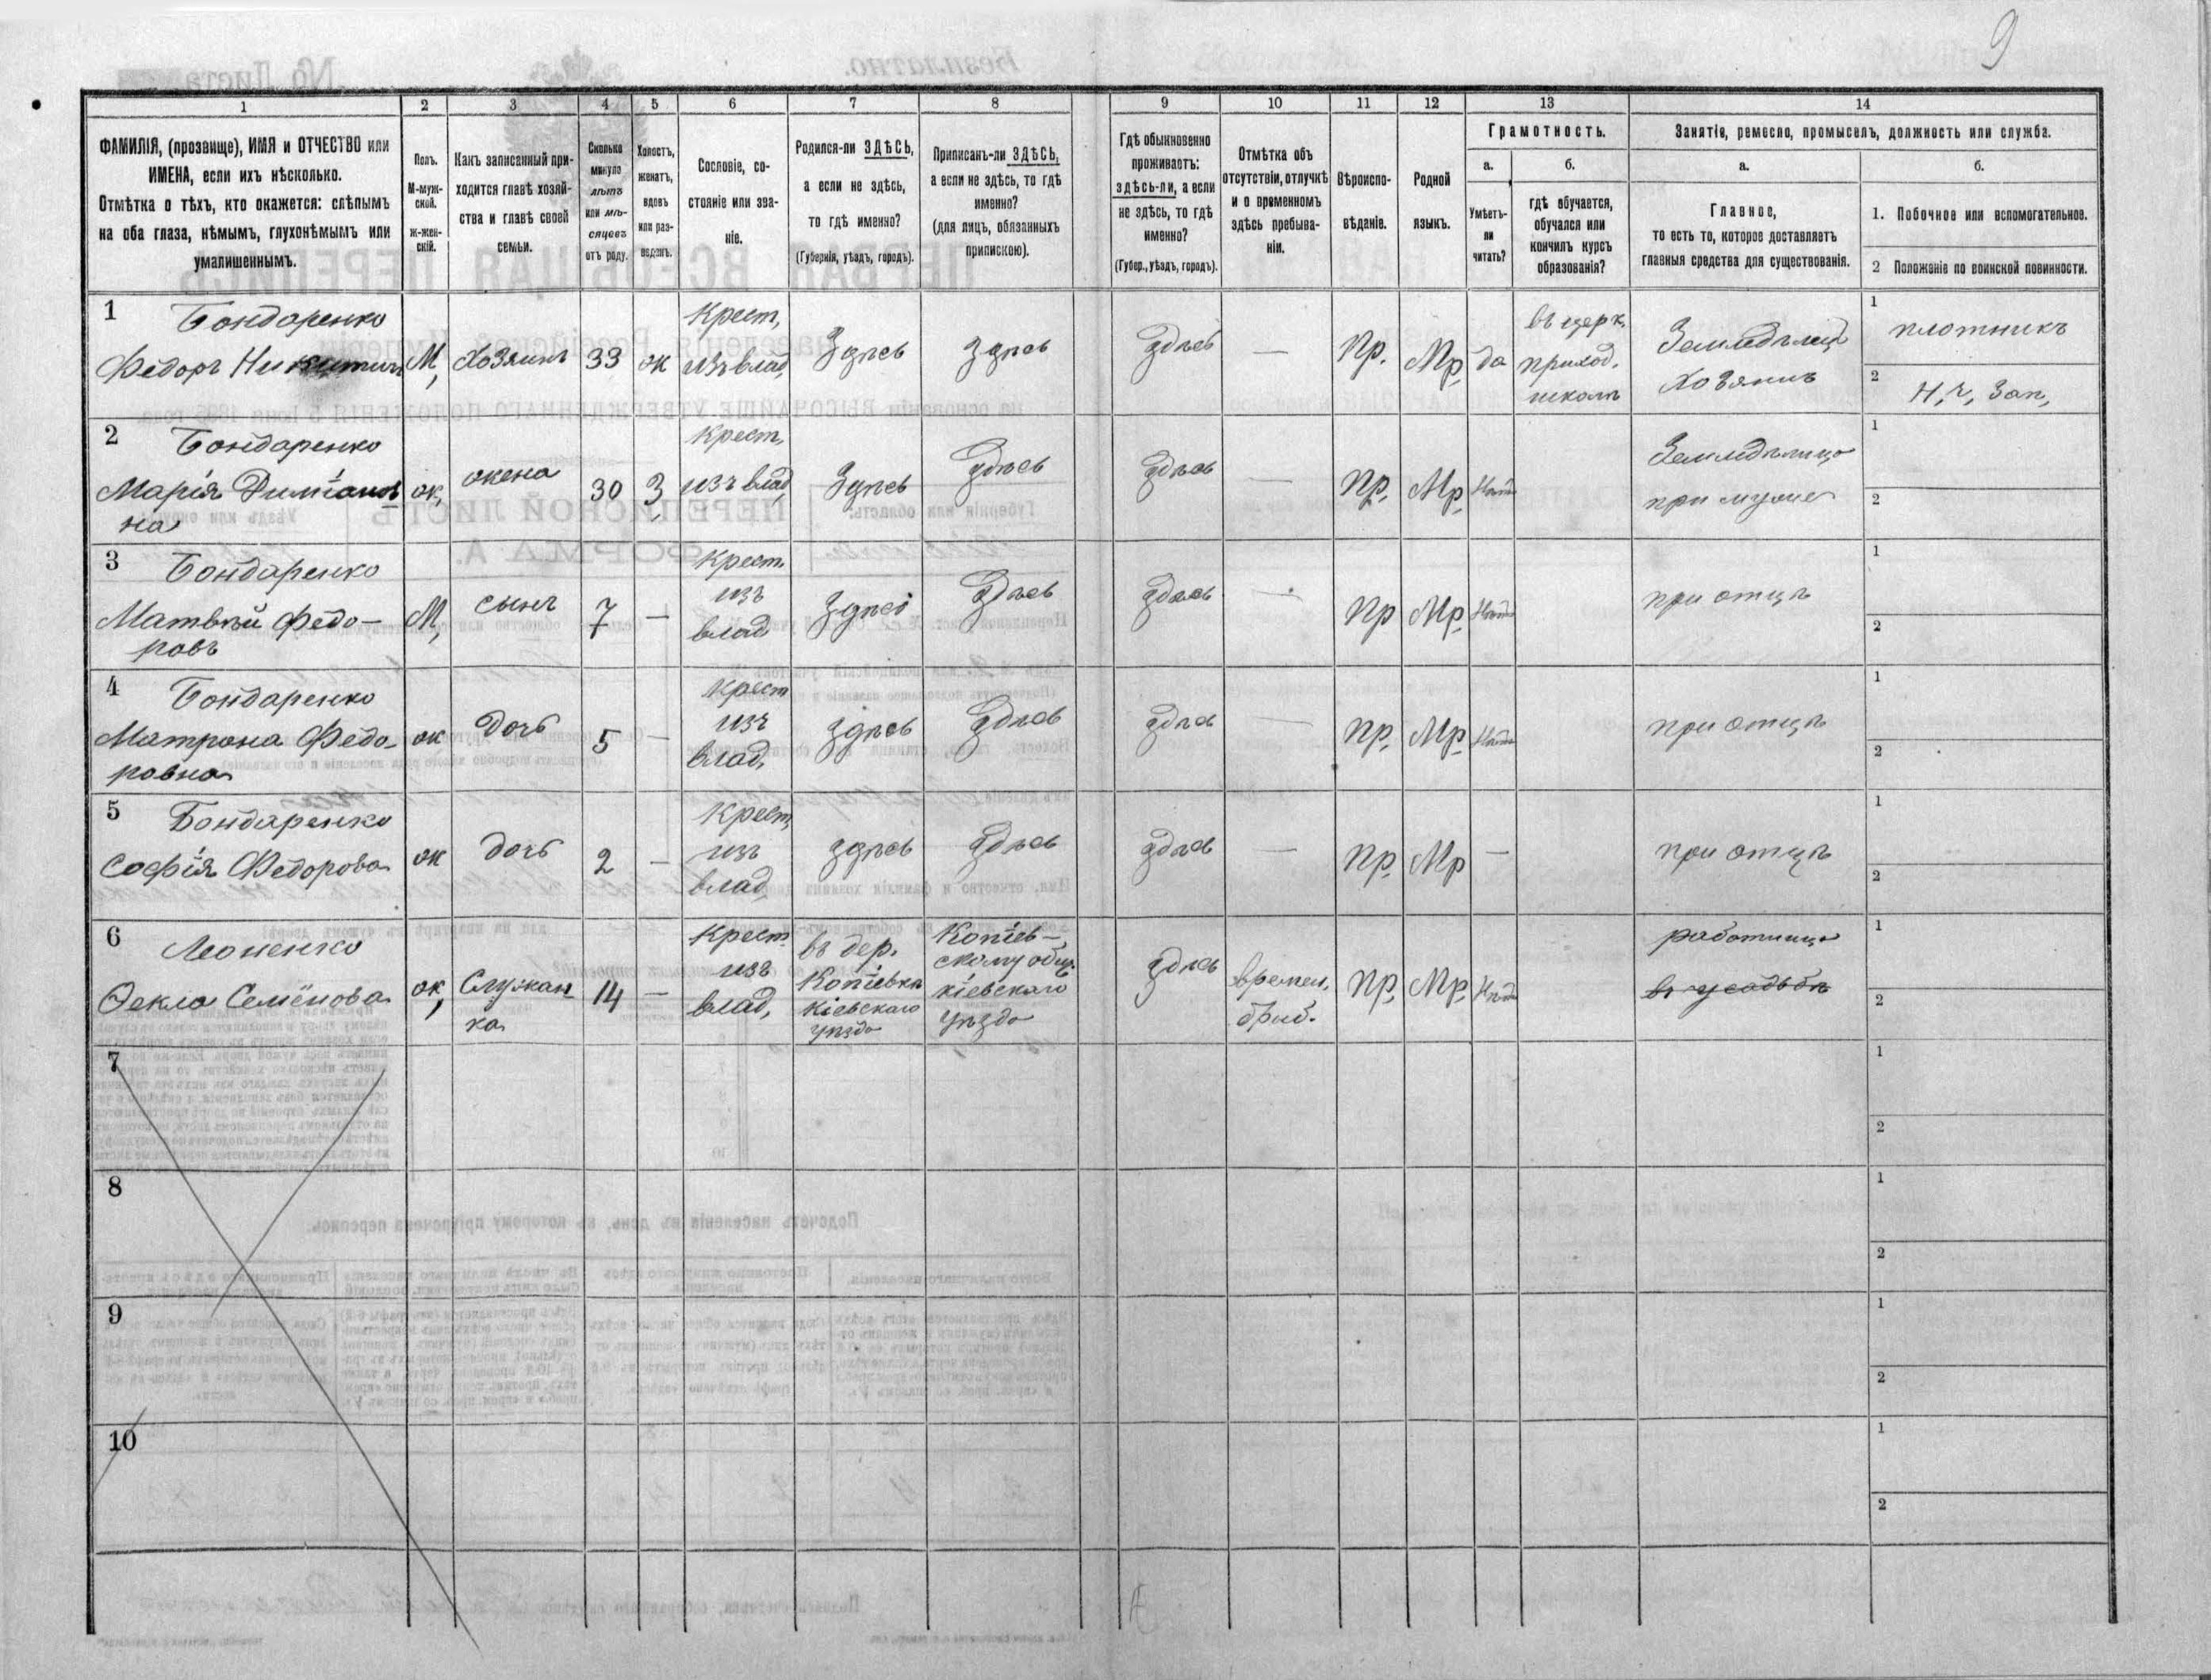 9
1
2
3
4
5
6
7
8
9
10
11
12
13
14
ФАМИЛІЯ, (прозвище), ИМЯ и ОТЧЕСТВО или
ИМЕНА, если ихъ нѣсколько.
Отмѣтка о тѣхъ, кто окажется: слѣпымъ
на оба глаза, нѣмымъ, глухонѣмымъ или
умалишеннымъ.
Полъ.
М-муж-
ской.
ж-жен-
скій.
Какъ записанный при-
ходится главѣ хозяй-
ства и главѣ своей
семьи.
Сколько
минуло
лѣтъ
или мѣ-
сяцевъ
отъ роду.
Холостъ,
женатъ,
вдовъ
или раз-
веденъ.
Сословіе, со-
стояніе или зва-
ніе.
Родился-ли ЗДѢСЬ,
а если не здѣсь,
то гдѣ именно?
(Губернія, уѣздъ, городъ).
Приписанъ-ли ЗДѢСЬ,
а если не здѣсь, то гдѣ
именно?
(для лицъ, обязанныхъ
припискою).
Гдѣ обыкновенно
проживаетъ:
здѣсь-ли, а если
не здѣсь, то гдѣ
именно?
(Губер., уѣздъ, городъ).
Отмѣтка объ
отсутствіи, отлучкѣ
и о временномъ
здѣсь пребыва-
ніи.
Вѣроиспо-
вѣданіе.
Родной
языкъ.
Грамотность.
а.
Умѣетъ-
ли
читать?
б.
гдѣ обучается,
обучался или
кончилъ курсъ
образованія?
Занятіе, ремесло, промыселъ, должность или служба.
а.
Главное,
то есть то, которое доставляетъ
главныя средства для существованія.
б.
1. Побочное или вспомогательное.
2 Положеніе по воинской повинности.
1 Бондаренко
Федоръ Никитичъ
М,
Хозяинъ
33
ж
Крест,
изъ влад,
Здѣсь
Здѣсь
здѣсь
—
Пр.
Мр,
да
въ церк,
приход.
школѣ
Земледѣлецъ
Хозяинъ
1 плотникъ
2 Н, ч, Зап,
2 Бондаренко
Марія Димiанов
на
ж,
жена
30
З,
Крест,
изъ влад,
Здѣсь
Здѣсь
здѣсь
—
Пр.
Мр,
Нѣтъ
Земледѣлица
при мужѣ
1
2
3 Бондаренко
Матвѣй Федо-
ровъ
М,
сынъ
7
—
Крест
изъ
влад
Здѣсь
Здѣсь
здѣсь
—
Пр
Мр,
Нѣтъ
при отцѣ
1
2
4 Бондаренко
Матрона Федо-
ровна
ж
дочь
5
—
Крест
изъ
влад,
здѣсь
Здѣсь
здѣсь
—
Пр,
Мр,
Нѣтъ
при отцѣ
1
2
5 Бондаренко
Софія Федорова
ж
дочь
2
—
Крест,
изъ
влад,
здѣсь
Здѣсь
здѣсь
—
Пр,
Мр
—
при отцѣ
1
2
6 Леоненко
Ѳекла Семёнова
ж,
Служан
ка
14
—
Крест
изъ
влад,
въ дер.
Копіевка
Кіевскаго
уѣзда
Копіев-
скому общ.
кіевскаго
уѣзда
здѣсь
времен,
приб.
Пр,
Мр,
Нѣтъ
работница
въ усадьбѣ
1
2
7
1
2
8
1
2
9
1
2
10
1
2